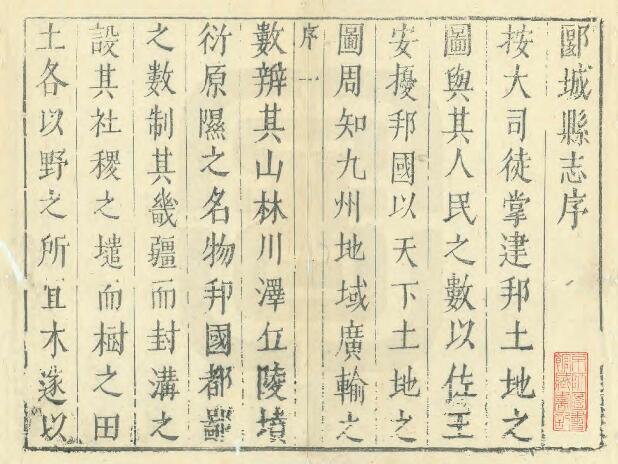 郾城縣志序
按大司徒掌建邦土地之
圖與其人民之數以佐王
安擾邦國以天下土地之
圖周知九州地域廣輪之
序 一
數辨其山林川澤丘陵墳
衍原隰之名物邦國都鄙
之數制其畿疆而封溝之
設其社稷之壝而樹之田
土各以野之所宜木遂以